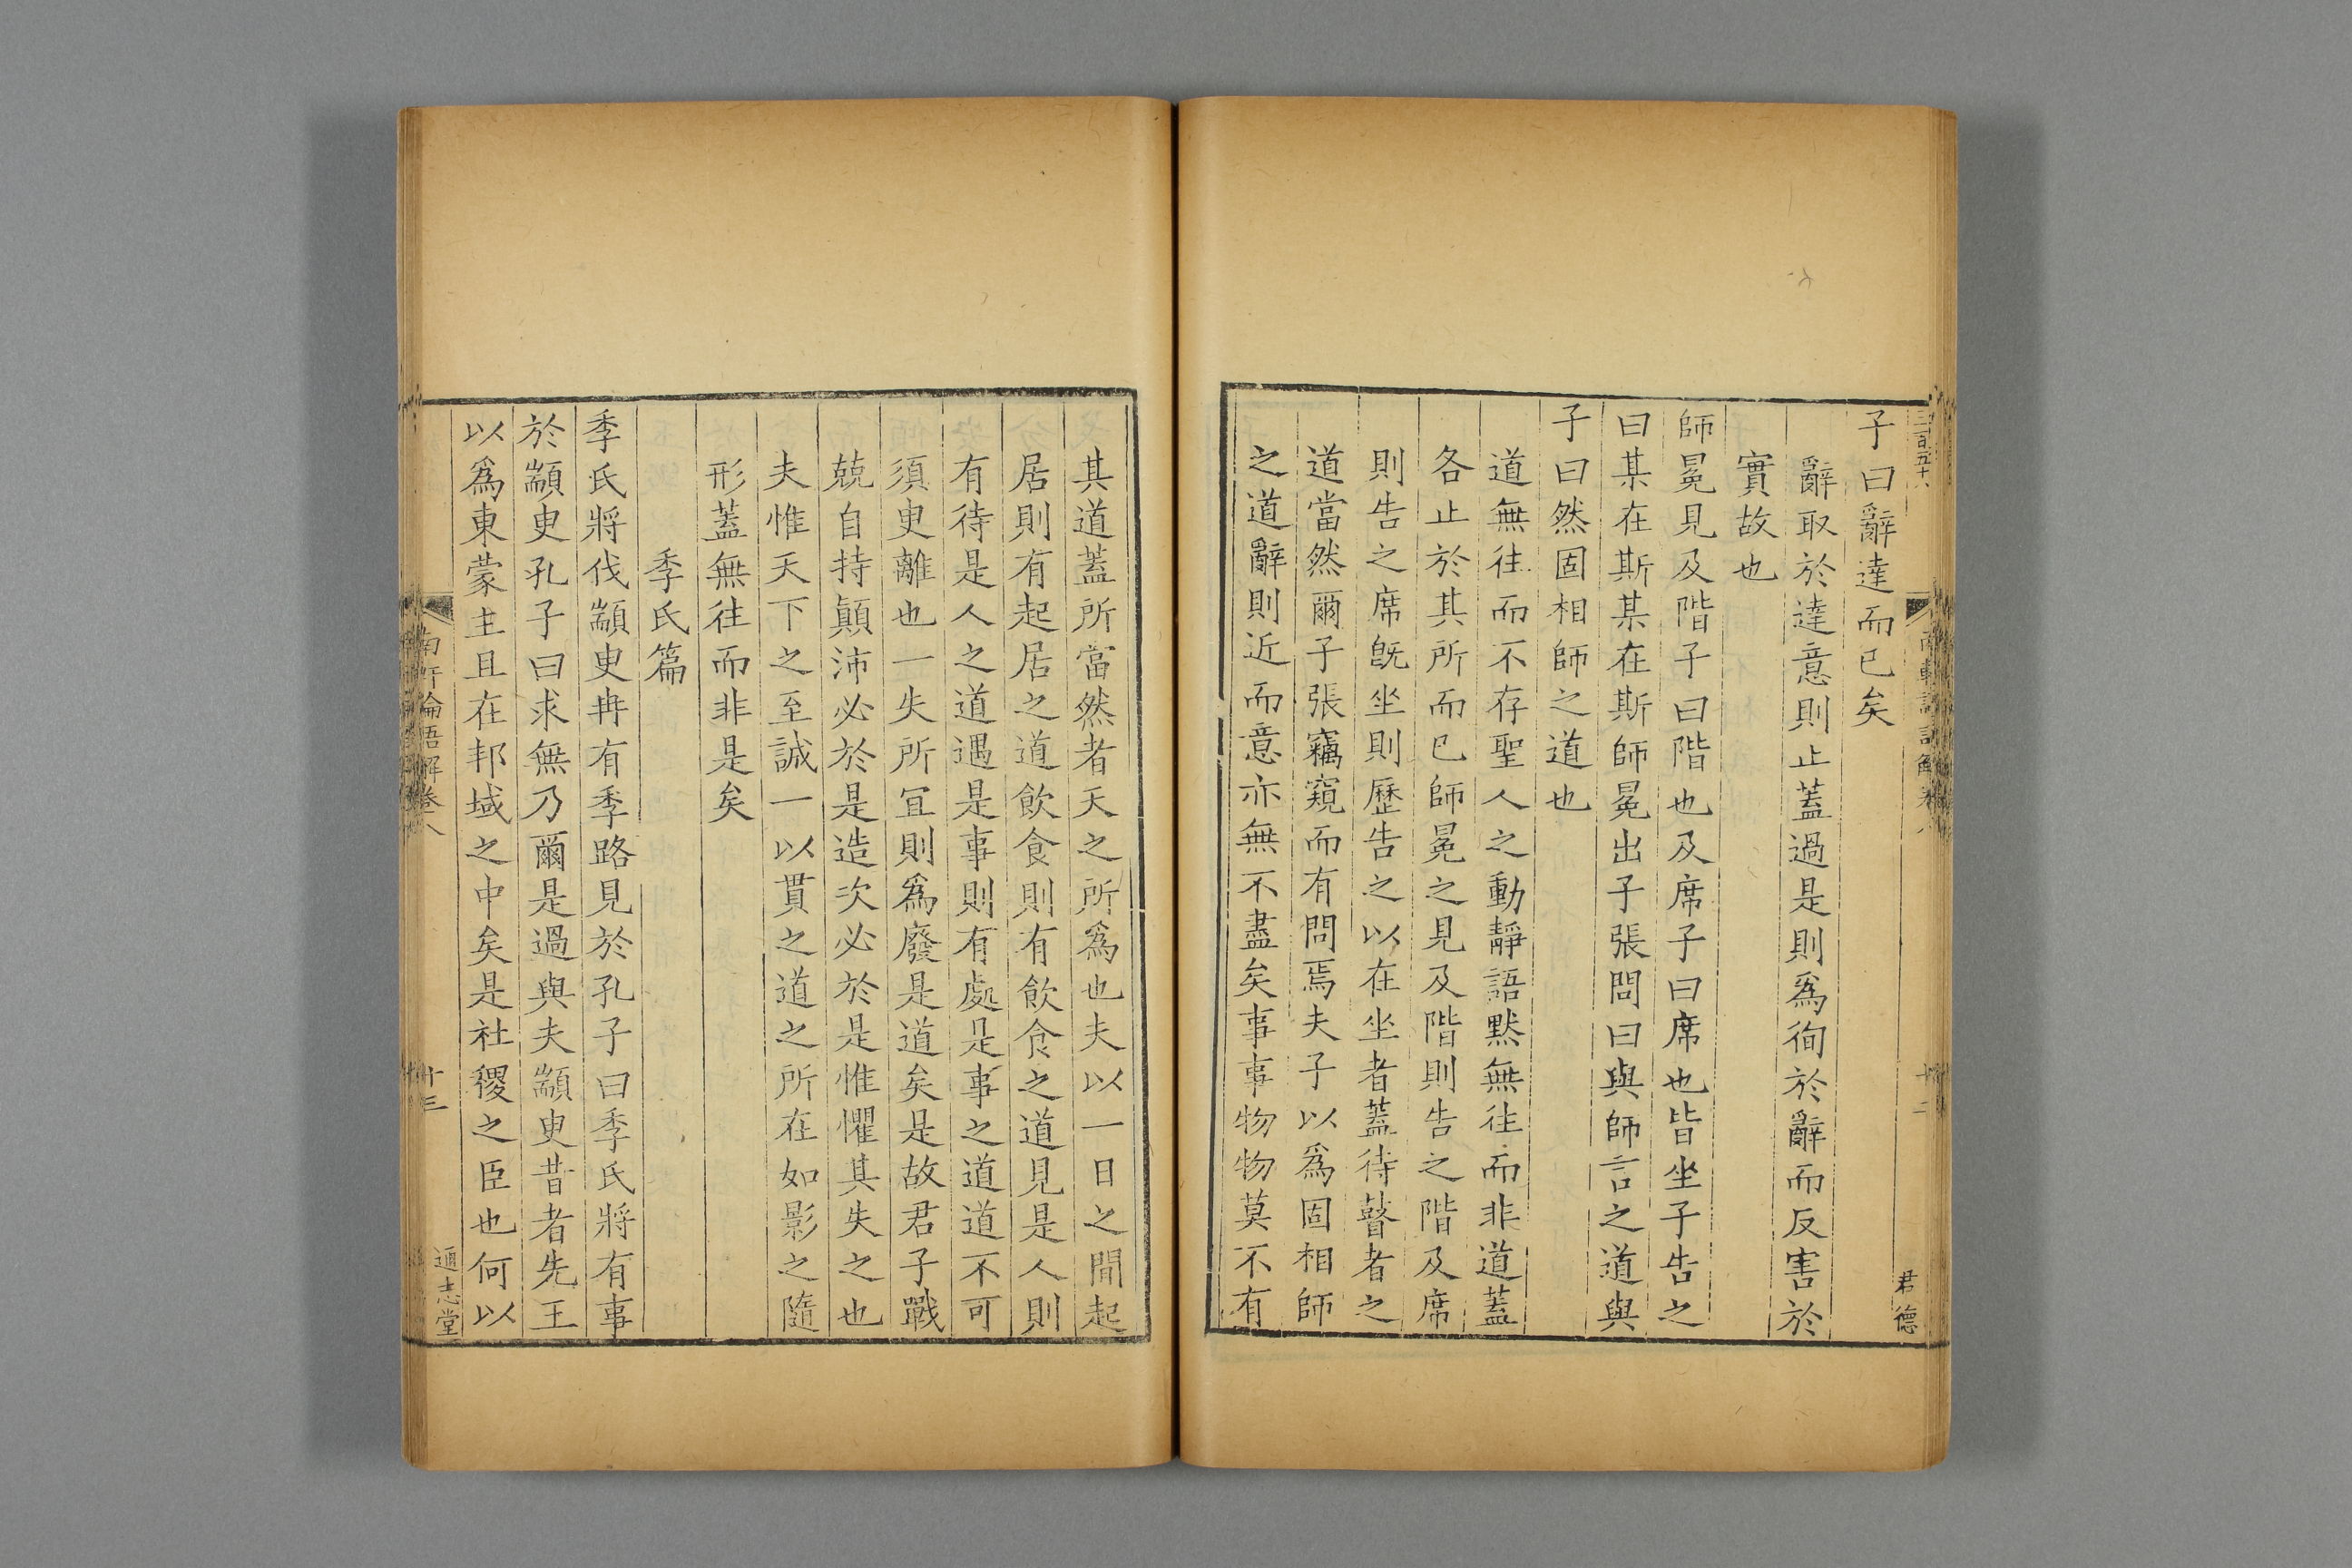 子曰辭達而已矣
辭取於達意則止蓋過是則爲徇於辭而反害於
實故也
師冕見及階子曰階也及席子曰席也皆坐子告之
曰某在斯某在斯師冕出子張問曰與師言之道與
子曰然固相師之道也
道無往而不存聖人之動靜語默無往而非道蓋
各止於其所而已師冕之見及階則告之階及席
則告之席旣坐則歷告之以在坐者蓋待瞽者之
道當然爾子張竊窺而有問焉夫子以爲固相師
之道辭則近而意亦無不盡矣事事物物莫不有
君德
其道蓋所當然者天之所爲也夫以一日之間起
居則有起居之道飮食則有飮食之道見是人則
有待是人之道遇是事則有處是事之道道不可
須臾離也一失所冝則爲廢是道矣是故君子戰
兢自持顛沛必於是造次必於是惟懼其失之也
夫惟天下之至誠一以貫之道之所在如影之隨
形蓋無往而非是矣
季氏篇
季氏將伐顓臾冉有季路見於孔子曰季氏將有事
於顓臾孔子曰求無乃爾是過與夫顓臾昔者先王
以爲東蒙主且在邦域之中矣是社稷之臣也何以
南軒論語解卷八
十三
通志堂